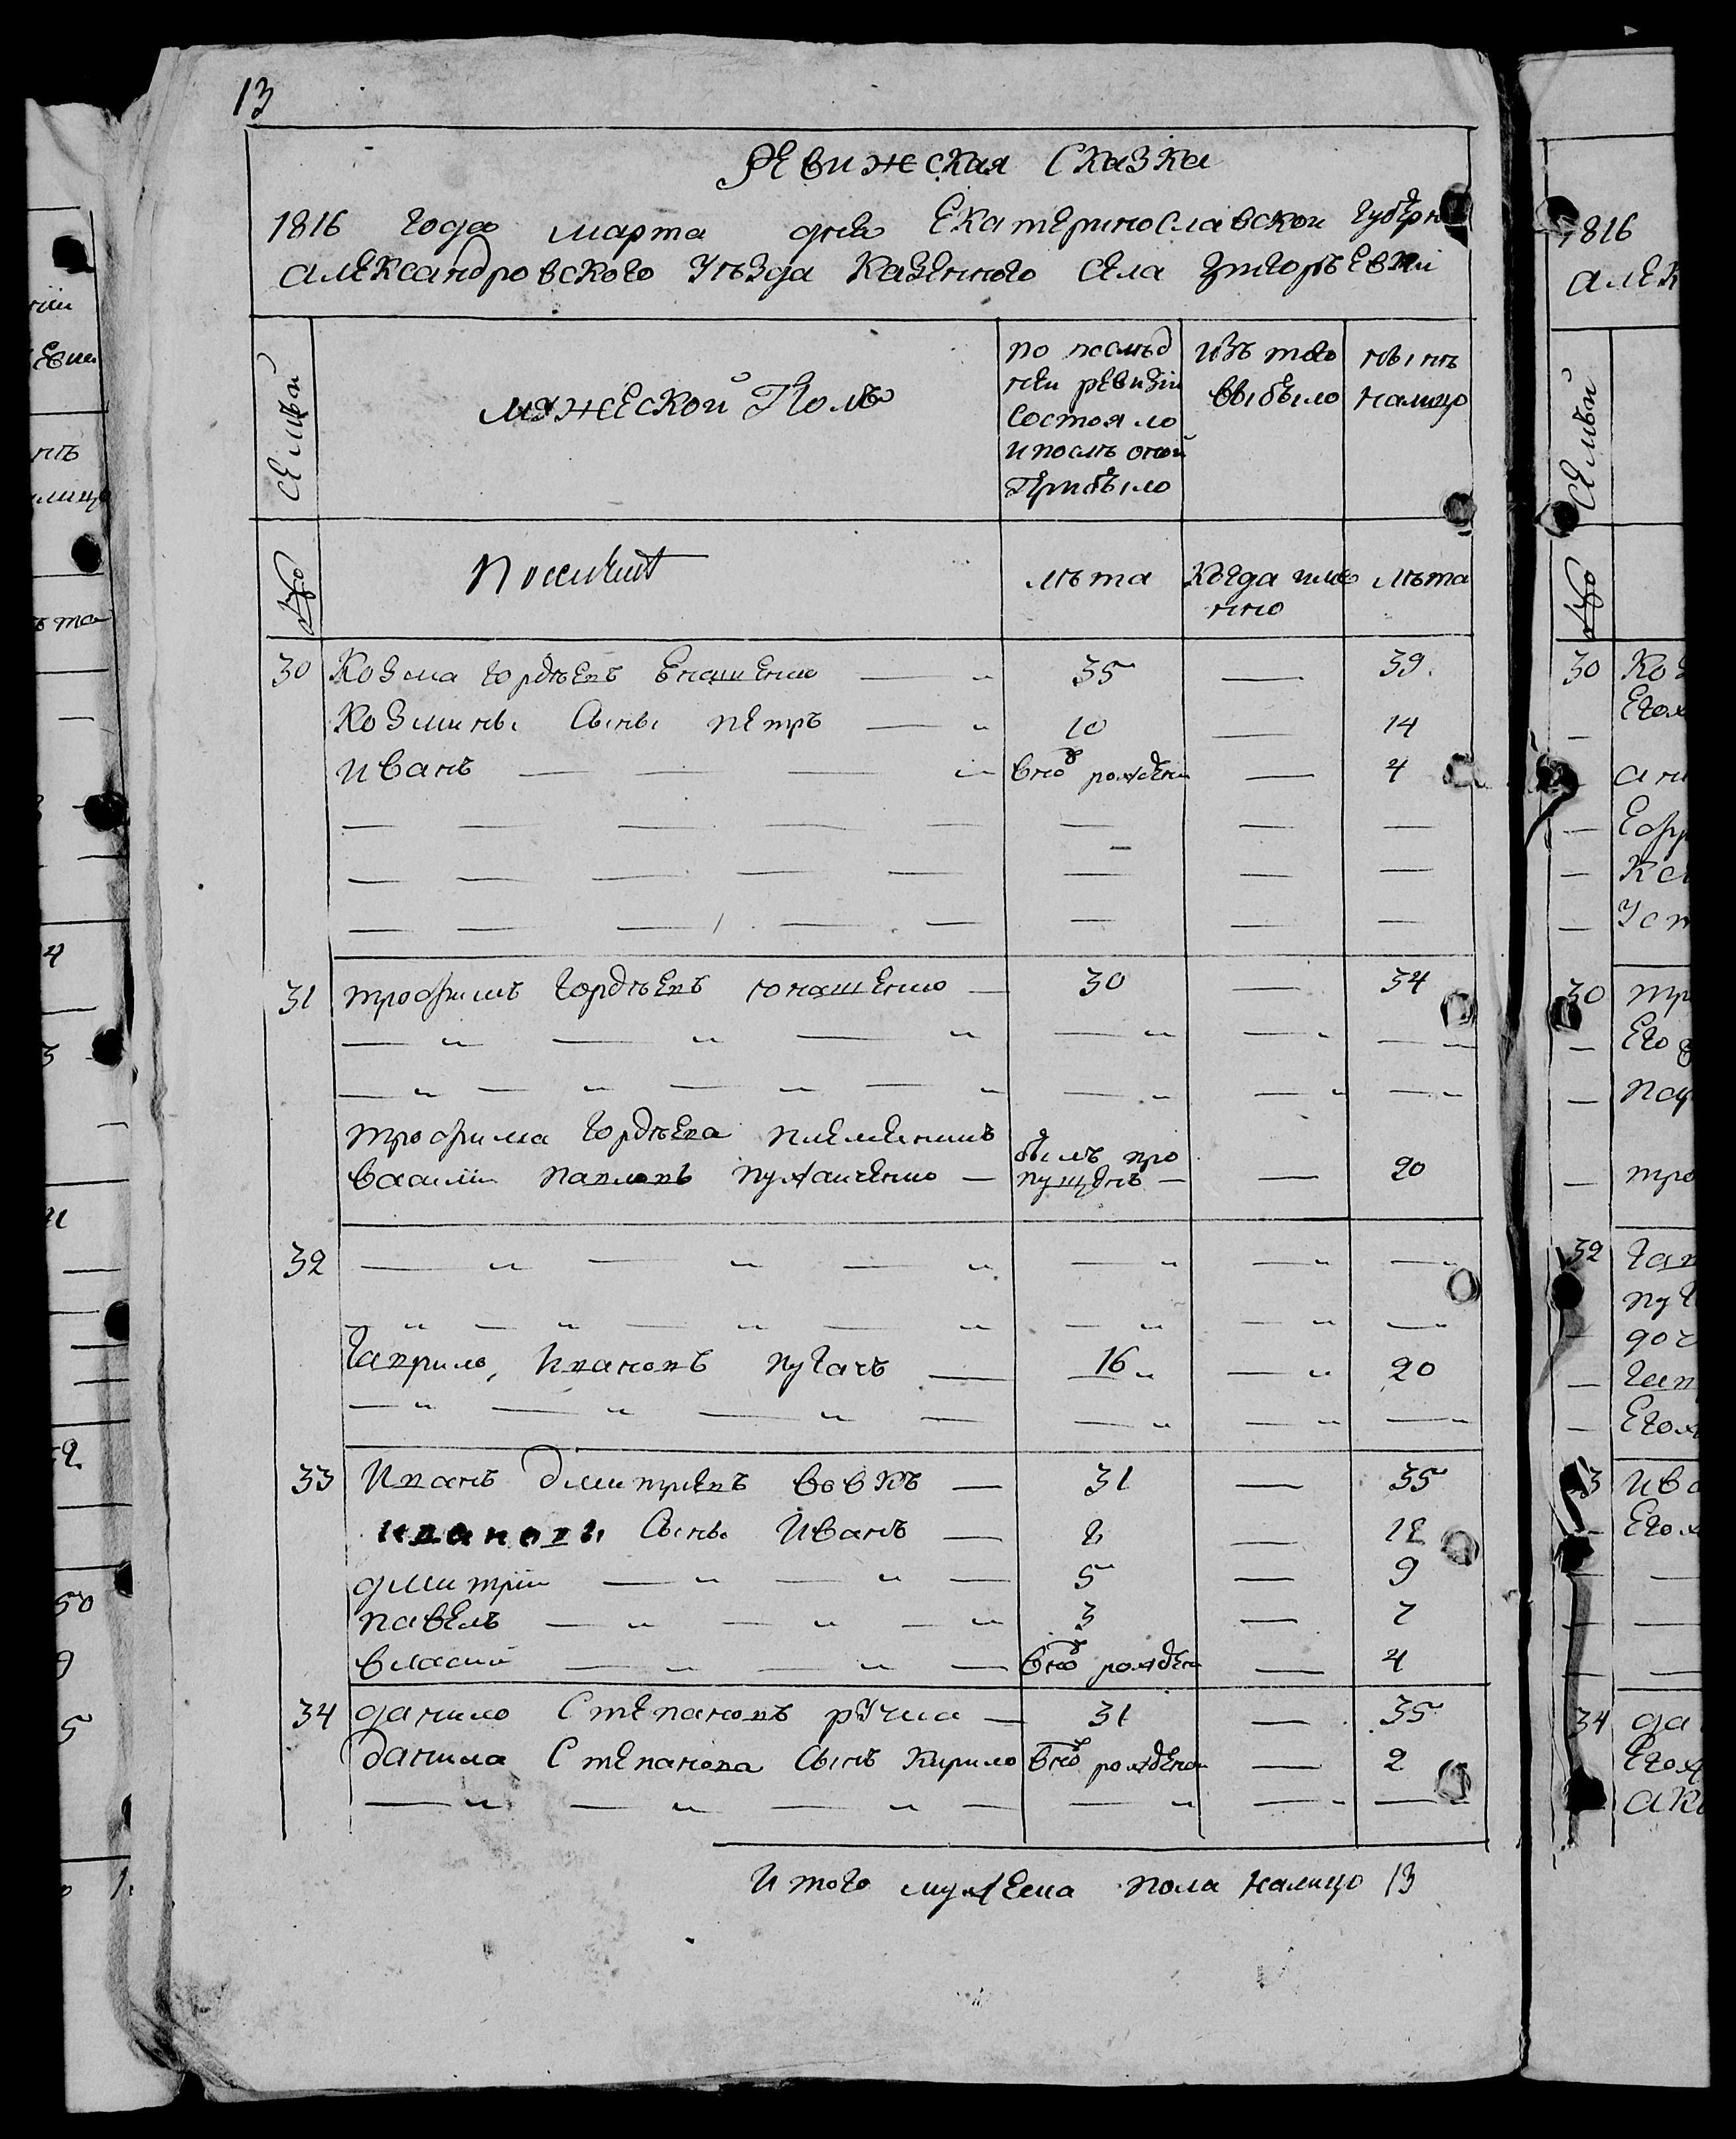 13
Ревижская Сказка
1816 года марта дня Екатеринославской губерн
александровского уезда казенного села григорьевки
семьи
мужеской Полъ
по послѣд
ней ревизіи
состояло
и послѣ оной
Прибыло
изъ того
выбыло
нынѣ
налицо
№
лѣта
когда име
нно
лѣта
30 Козма гордѣевъ — „ 35 — 39.
Козмины Сыны петръ — „ 10 — 14
иванъ — — — „ внов рожден — 4
31 трофимъ гордѣевъ юнашенко — 30 — 34
трофима гордѣева племенникъ
василій павловъ пугаченко —
былъ про
пущенъ — — 20
32
гаврило, Ивановъ пугачъ — 16 „ — „ 20
33 Иванъ дмитревъ вовкъ — 31 — 35
ивановы Сыны Иванъ — 8 — 12
дмитрій — „ — „ — 5 — 9
павелъ — „ — „ — „ 3 — 7
власій — „ — „ — внов рожден — 4
34 данило Степановъ ручка — 31 — 35
данила Степанова сынъ кирило внов рожденъ — 2
Итого мужеска пола налицо 13
1816
алек
семьи
№
30 Коз
Егож
Ефр
Уст
30 тр
Его
тро
32 гав
доч
гав
Егож
ива
Егож
34 да
Егож